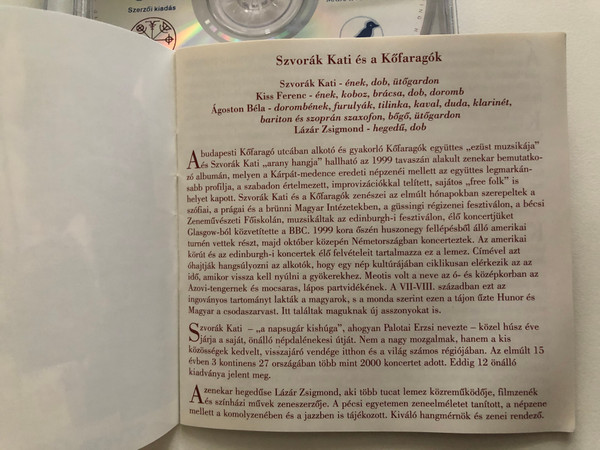 Szerzői kiadás
Szvorák Kati és a Kőfaragók
Szvorák Kati - ének, dob, ütőgardon
Kiss Ferenc - ének, koboz, brácsa, dob, doromb
Ágoston Béla - dorombének, furulyák, tilinka, kaval, duda, klarinét,
bariton és szoprán szaxofon, bőgő, ütőgardon
Lázár Zsigmond - hegedű, dob
A budapesti Kőfaragó utcában alkotó és gyakorló Kőfaragók együttes „ezüst muzsikája”
és Szvorák Kati „arany hangja” hallható az 1999 tavaszán alakult zenekar bemutatko-
zó albumán, melyen a Kárpát-medence eredeti népzenéi mellett az együttes legmarkán-
sabb profilja, a szabadon értelmezett, improvizációkkal telített, sajátos „free folk” is
helyet kapott. Szvorák Kati és a Kőfaragók zenészei az elmúlt hónapokban szerepeltek a
szófiai, a prágai és a brünni Magyar Intézetekben, a güssingi régizenei fesztiválon, a bécsi
Zeneművészeti Főiskolán, muzsikáltak az edinburgh-i fesztiválon, élő koncertjüket
Glasgow-ból közvetítette a BBC. 1999 kora őszén huszonegy fellépésből álló amerikai
turnén vettek részt, majd október közepén Németországban koncerteztek. Az amerikai
körút és az edinburgh-i koncertek élő felvételeit tartalmazza ez a lemez. Címével azt
óhajtják hangsúlyozni az alkotók, hogy egy nép kultúrájában ciklikusan elérkezik az az
idő, amikor vissza kell nyúlni a gyökerekhez. Meotis volt a neve az ó- és középkorban az
Azovi-tengernek és mocsaras, lápos partvidékének. A VII-VIII. században ezt az
ingoványos tartományt lakták a magyarok, s a monda szerint ezen a tájon űzte Hunor és
Magyar a csodaszarvast. Itt találtak maguknak új asszonyokat is.
Szvorák Kati – „a napsugár kishúga”, ahogyan Palotai Erzsi nevezte – közel húsz éve
járja a saját, önálló népdalénekesi útját. Nem a nagy mozgalmak, hanem a kis
közösségek kedvelt, visszajáró vendége itthon és a világ számos régiójában. Az elmúlt 15
évben 3 kontinens 27 országában több mint 2000 koncertet adott. Eddig 12 önálló
kiadványa jelent meg.
A zenekar hegedűse Lázár Zsigmond, aki több tucat lemez közreműködője, filmzenék
és színházi művek zeneszerzője. A pécsi egyetemen zeneelméletet tanított, a népzene
mellett a komolyzenében és a jazzben is tájékozott. Kiváló hangmérnök és zenei rendező.